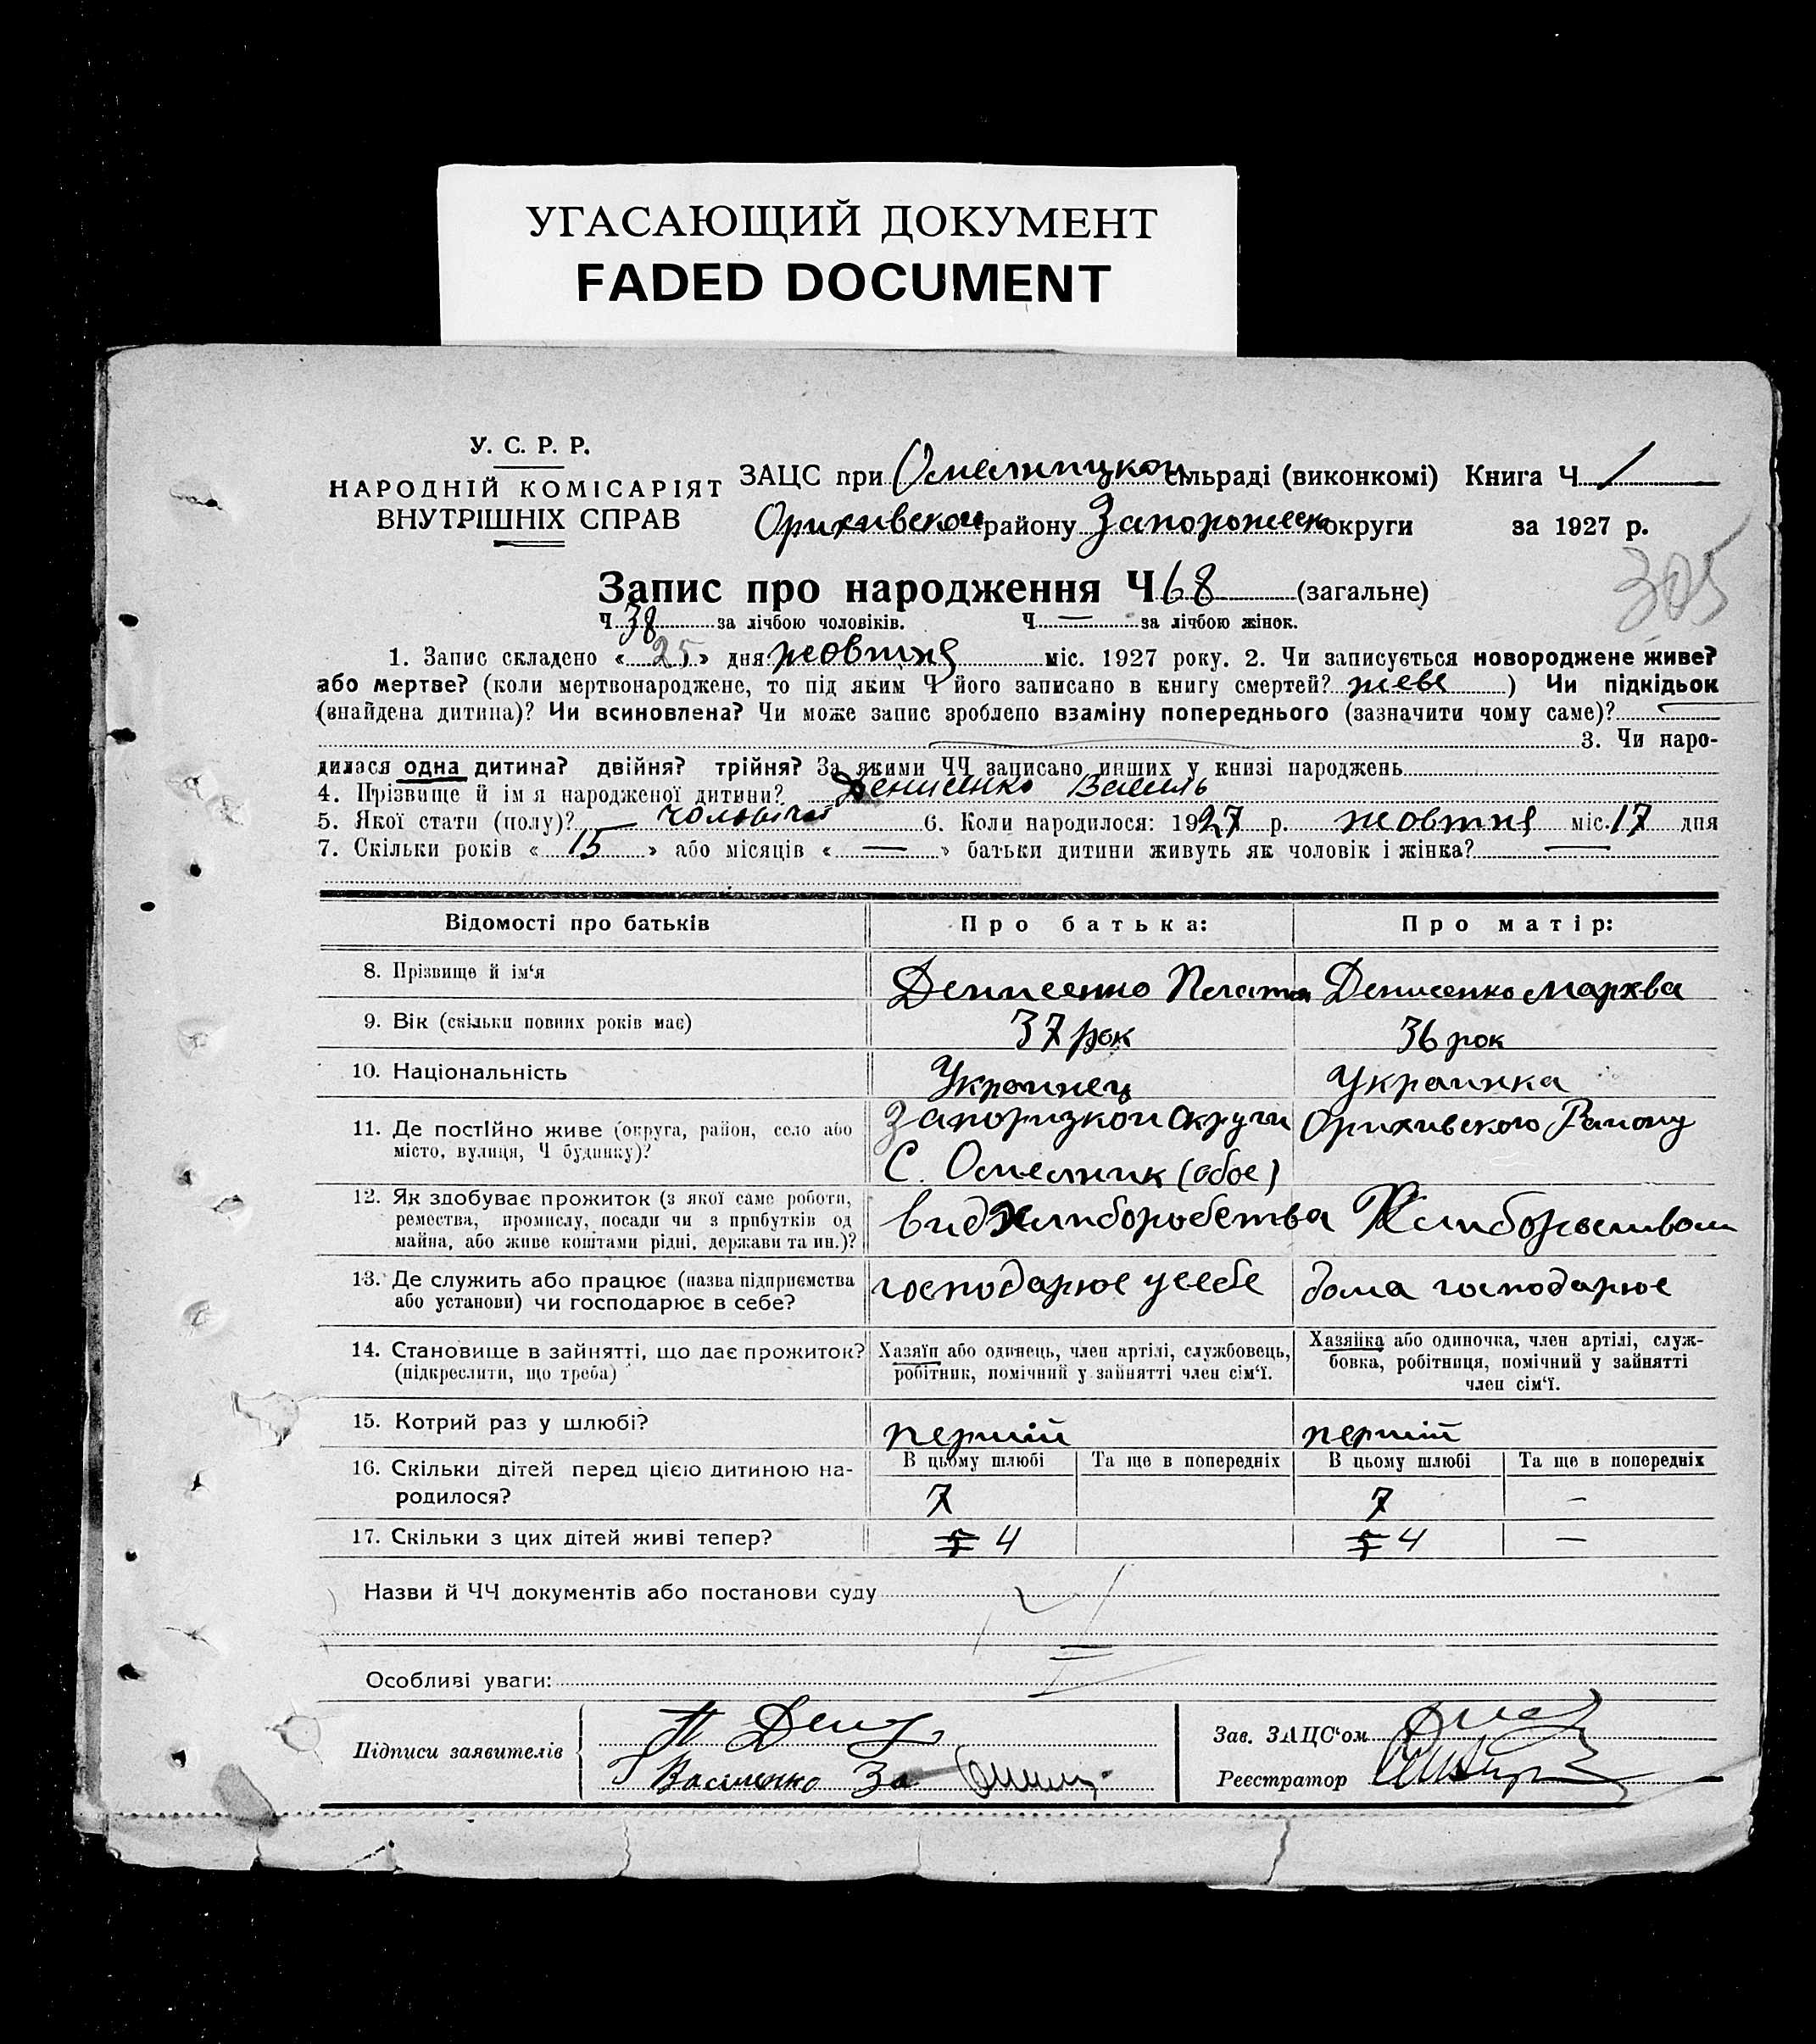 УГАСАЮЩИЙ ДОКУМЕНТ
FADED DOCUMENT
У. С. Р. Р.
НАРОДНІЙ КОМІСАРІЯТ
ВНУТРІШНІХ СПРАВ
ЗАЦС при Омельницкои сільраді (виконкомі) Книга Ч 1
Орихивскои району Запорожск округи за 1927 р.
305
Запис про народження Ч 68 (загальне)
Ч 38 за лічбою чоловіків. Ч — за лічбою жінок.
1. Запис складено « 25 » дня жовтня міс. 1927 року. 2. Чи записується новороджене живе?
або мертве? (коли мертвонароджене, то під яким Ч його записано в книгу смертей? живе ) Чи підкідьок
(внайдена дитина)? Чи всиновлена? Чи може запис зроблено взаміну попереднього (зазначити чому саме)?
3. Чи наро-
дилася одна дитина? двійня? трійня? За якими ЧЧ записано инших у книзі народжень
4. Прізвище й ім я народженої дитини? Денисенко Василь
5. Якої стати (полу)? чоловічої 6. Коли народилося: 1927 р. жовтня міс. 17 дня
7. Скільки років « 15 » або місяців « — » батьки дитини живуть як чоловік і жінка? —
Відомості про батьків Про батька: Про матір:
8. Прізвище й ім'я Денисенко Платон Денисенко Мархва
9. Вік (скільки повних років має) 37 рок 36 рок
10. Національність Украинец Украинка
11. Де постІйно живе (округа, район, село або Запоризкои округи Орихивского Району
місто, вулиця, Ч будинку)? С. Омельник (обое)
12. Як здобуває прожиток (з якої саме роботи,
ремества, промислу, посади чи з прибутків од вид хлиборобства
майна, або живе коштами рідні, держави та ин.)?
13. Де служить або працює (назва підприємства господарює у себе дома господарює
або установи) чи господарює в себе?
14. Становище в зайнятті, що дає прожиток? Хазяїн або одинець, член артілі, службовець, Хазяйка або одиночка, член артілі, служ-
(підкреслити, що треба) робітник, помічний у зайнятті член сім'ї. бовка, робітниця, помічний у зайнятті
член сім'ї.
15. Котрий раз у шлюбі? перший перший
16. Скільки дітей перед цією дитиною на- В цьому шлюбі Та ще в попередніх В цьому шлюбі Та ще в попередніх
родилося? 7 7 —
17. Скільки з цих дітей живі тепер? 4 4 —
Назви й ЧЧ документів або постанови суду
Особливі уваги:
Підписи заявителів П Ден
Василенко За
Зав. ЗАЦС'ом
Реєстратор